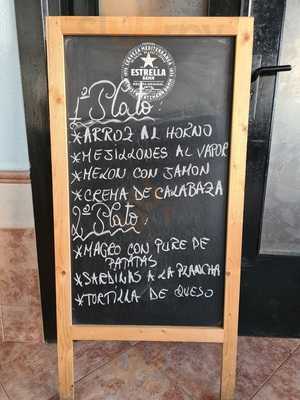 CERVEZA MEDITERRÁNEA
ESTRELLA
DAMM
1º Plato:
*ARROZ AL HORNO
*MEJILLONES AL VAPOR
*MELON CON JAMON
*CREMA DE CALABAZA
2º Plato:
*MAGRO CON PURE DE
PATATAS
*SARDINAS A LA PLANCHA
*TORTILLA DE QUESO